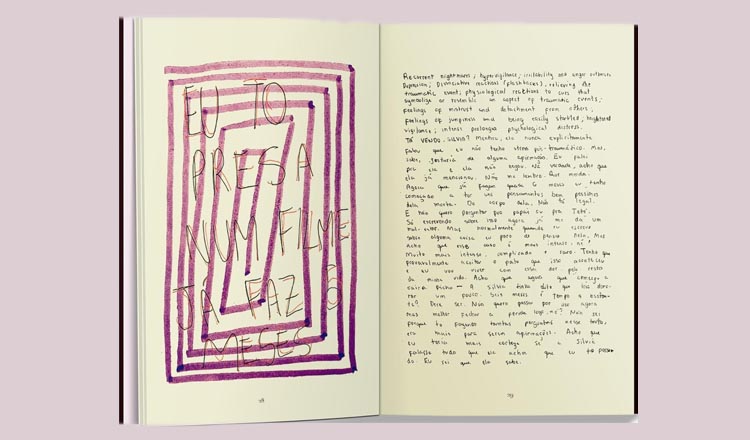 EU TO
PRESA
NUM FILME
JÁ FAZ 6
MESES
Recurrent nightmares; hypervigilance; irritability and anger outbursts
Depression; Dissociative reactions (flashbacks), relieving the
traumatic event; physiological reactions to cues that
symbolize or resemble an aspect of traumatic events;
feelings of mistrust and detachment from others;
feelings of jumpiness and being easily startled; heightened
vigilance; intense prolonged psychological distress.
TÁ VENDO, SILVIA? Mentira, ela nunca explicitamente
falou que eu não tenho stress pós-traumático. Mas,
sabe, gostaria de alguma afirmação. Eu falei
pra ela e ela não negou. Na verdade, acho que
ela já mencionou. Não me lembro. Que merda.
Agora que já foram quase 6 meses eu tenho
começado a ter uns pensamentos bem
dela morta. Do corpo dela. Não tá legal.
E não quero perguntar pro papai ou pra Teté.
Só escrevendo sobre isso agora já me dá um
mal-estar. Mas normalmente quando eu escrevo
sobre alguma coisa eu paro de pensar nela. Mas
acho que esse caso é mais intenso, né?
Muito mais intenso, complicado e raro. Tenho que
provavelmente aceitar o fato que isso aconteceu
e eu vou viver com essa dor pelo resto
da minha vida. Acho que aquilo que começa a
cair a ficha — A Silvia tinha dito que ia demo-
rar um pouco. Seis meses é tempo o bastan-
te? Deve ser. Não quero passar por isso agora
mas melhor fechar a ferida logo, né? Não sei
porque tô fazendo tantas perguntas nesse texto,
era mais para serem afirmações. Acho que
eu teria mais certeza se a Silvia
falasse tudo que ela acha que eu tô passan-
do. Eu sei que ela sabe.